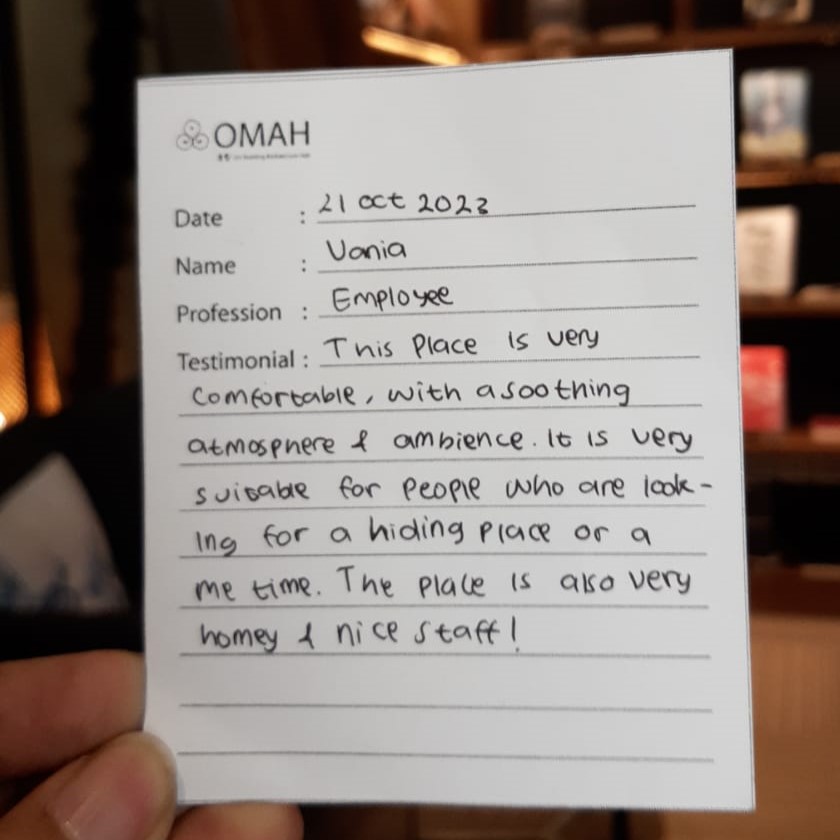 OMAH
Date : 21 oct 2023
Name : Vania
Profession : Employee
Testimonial : This Place is very
comfortable, with a soothing
atmosphere & ambience. It is very
suitable for people who are look-
ing for a hiding place or a
me time. The place is also very
homey & nice staff!